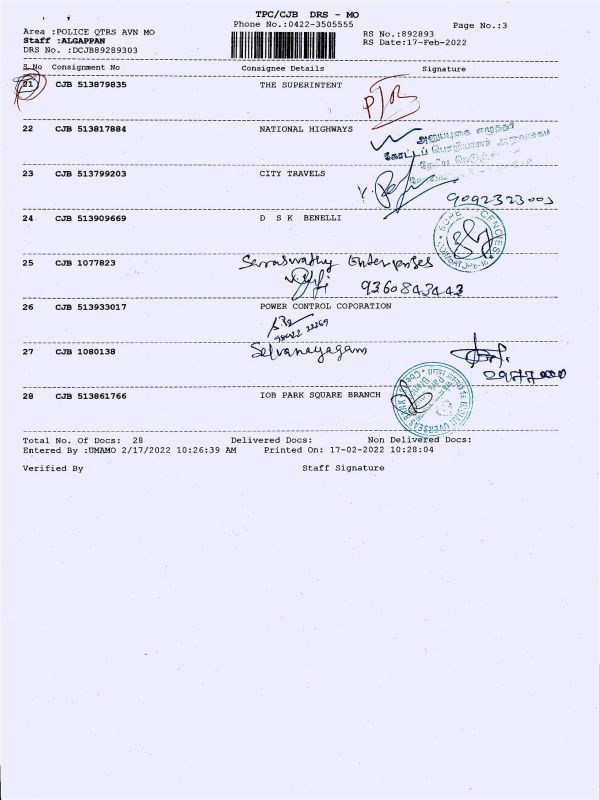 TPC/CJB DRS - MO
Phone No.:0422-3505555
Page No.:3
Area :POLICE QTRS AVN MO
RS No.:892893
Staff :ALGAPPAN
RS Date:17-Feb-2022
DRS No. :DCJB89289303
S.No Consignment No Consignee Details Signature
21 CJB 513879835 THE SUPERINTENT
22 CJB 513817884 NATIONAL HIGHWAYS
23 CJB 513799203 CITY TRAVELS
24 CJB 513909669 D S K BENELLI
25 CJB 1077823 Saraswathy Enterprises
9360843443
26 CJB 513933017 POWER CONTROL COPORATION
27 CJB 1080138 Selvanayagam
28 CJB 513861766 IOB PARK SQUARE BRANCH
Total No. Of Docs: 28 Delivered Docs: Non Delivered Docs:
Entered By :UMAMO 2/17/2022 10:26:39 AM Printed On: 17-02-2022 10:28:04
Verified By Staff Signature